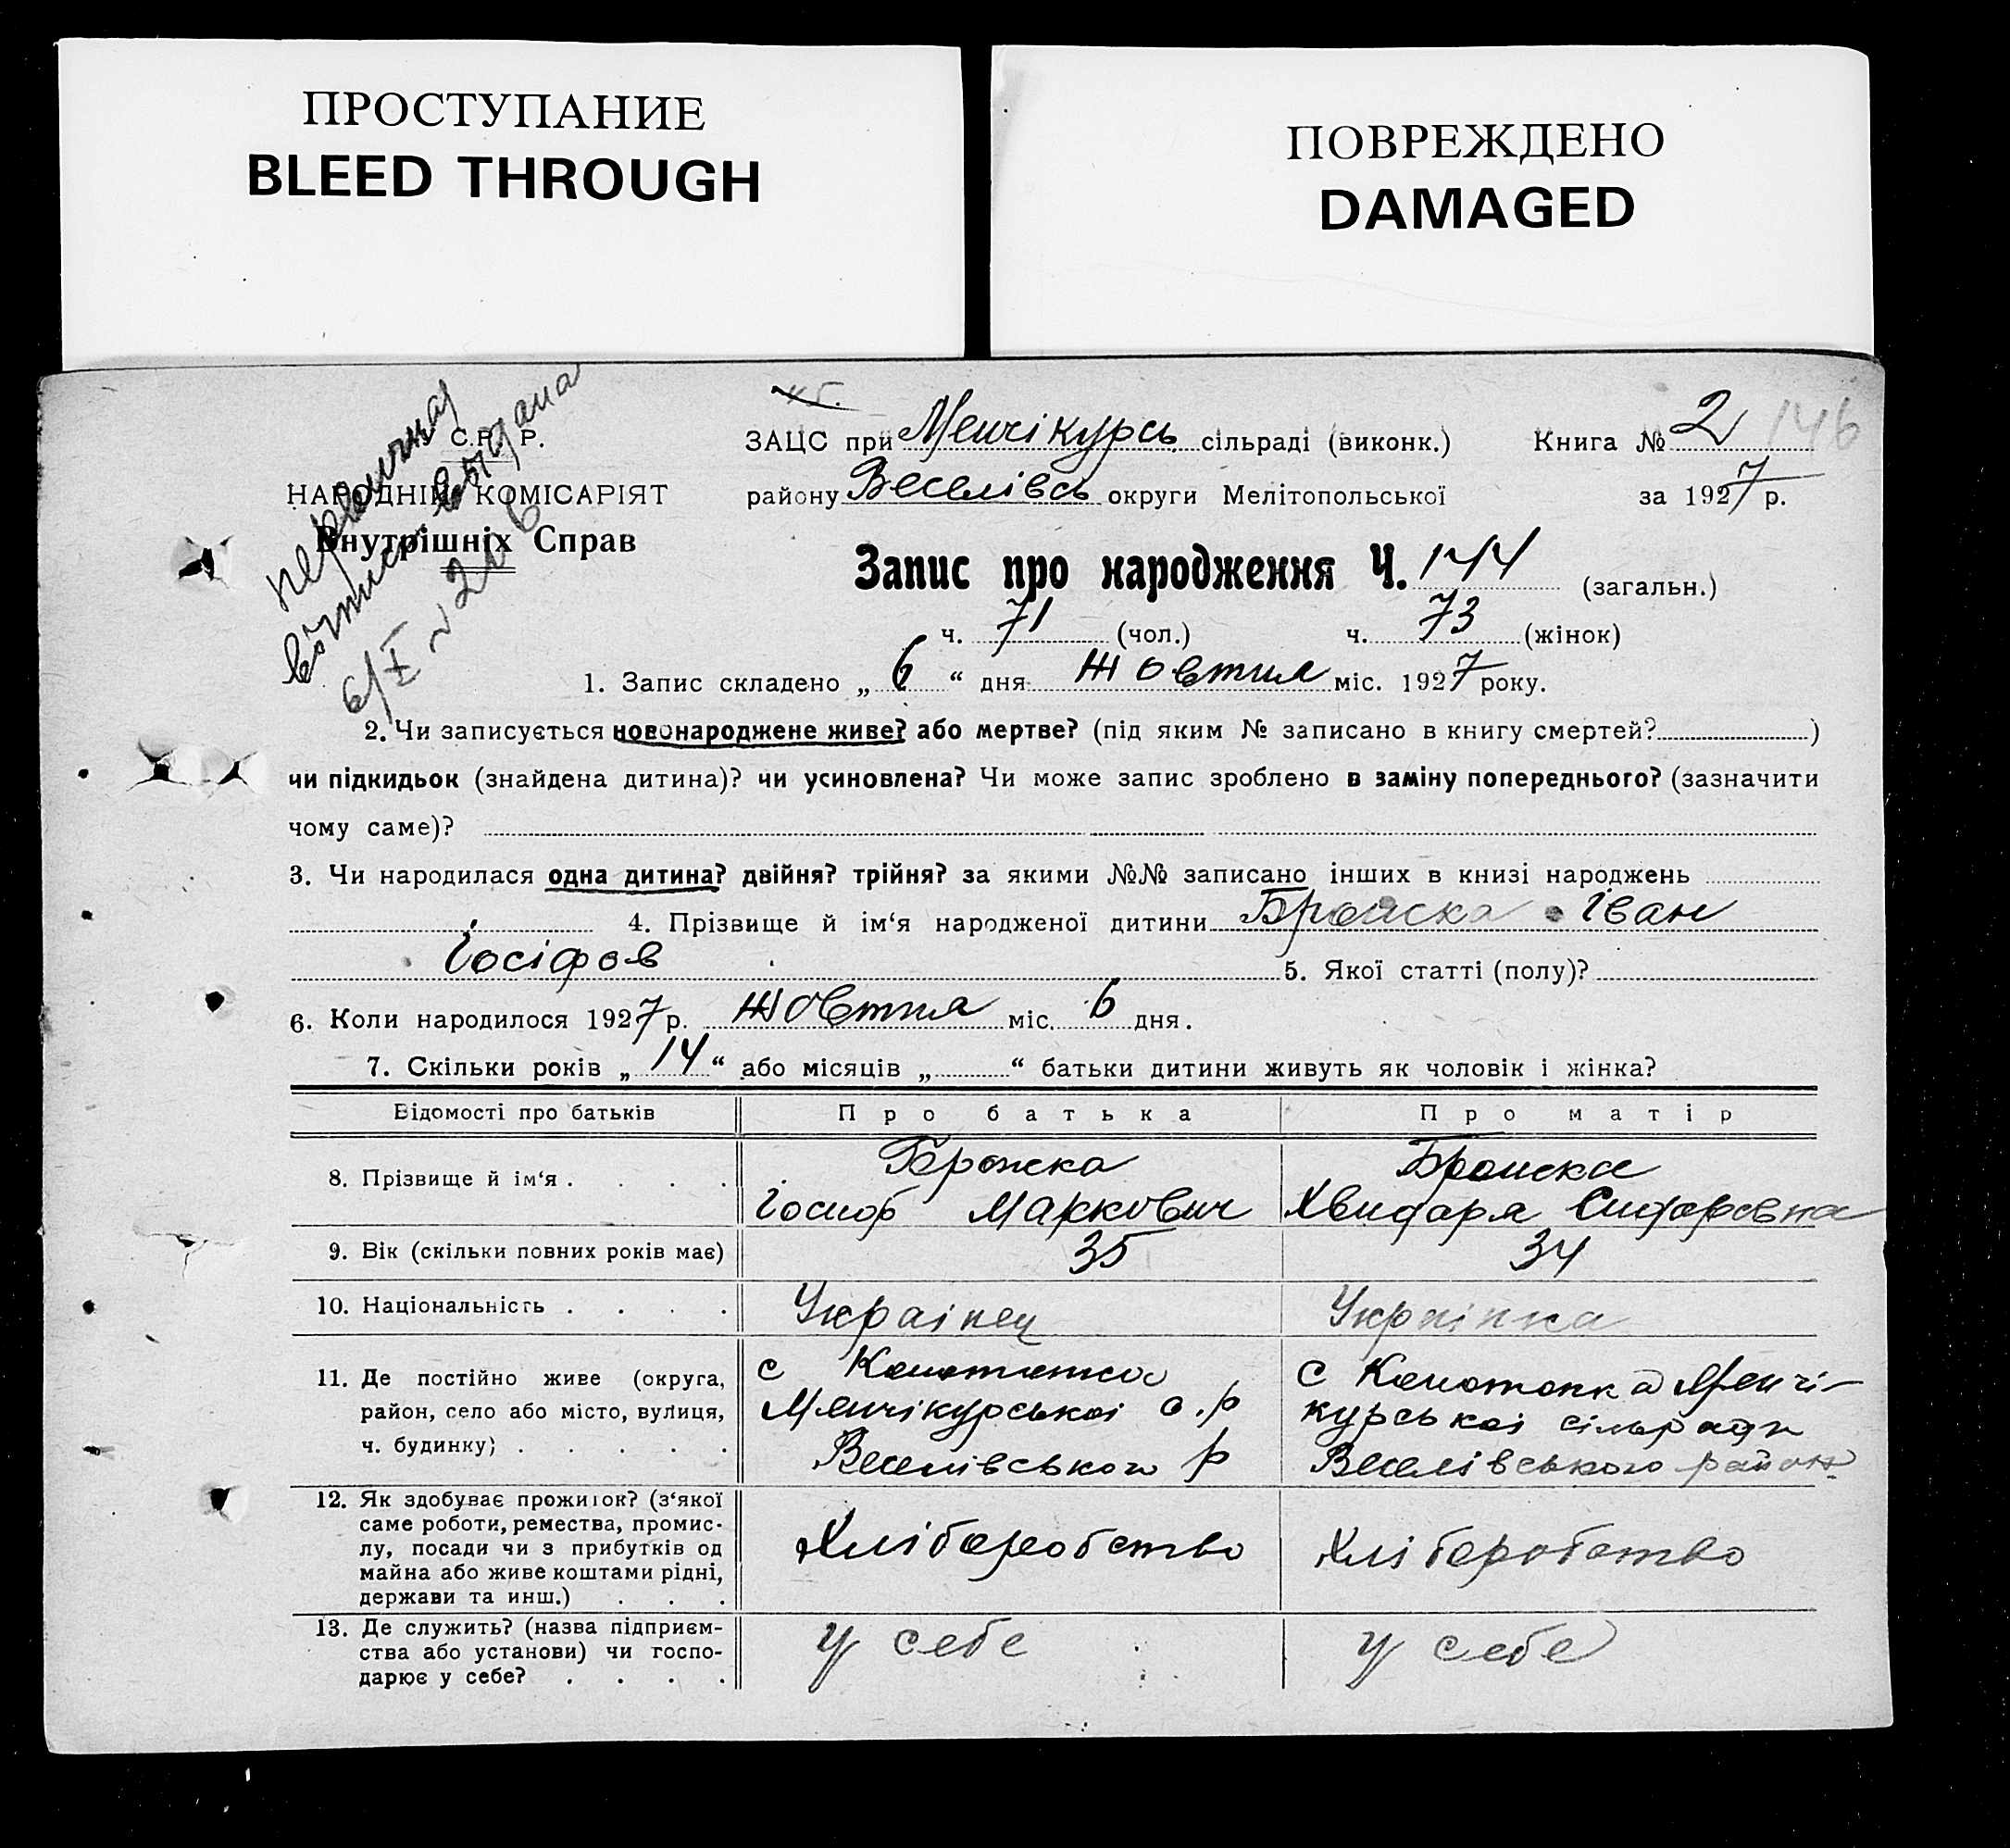 ПРОСТУПАНИЕ
BLEED THROUGH
ПОВРЕЖДЕНО
DAMAGED
С.Р. Р.
НАРОДНІЙ КОМІСАРІЯТ
Внутрішніх Справ
первичная
выпись выдана
6/X
ЗАЦС при Менчікурсь сільраді (виконк.) Книга № 2 146
району Веселівсь округи Мелітопольської за 1927 р.
Запис про народження Ч. 144 (загальн.)
ч. 71 (чол.) ч. 73 (жінок)
1. Запис складено „ 6 “ дня Жовтня міс. 1927 року.
2. Чи записується новонароджене живе? або мертве? (під яким № записано в книгу смертей? )
чи підкидьок (знайдена дитина)? чи усиновлена? Чи може запис зроблено в заміну попереднього? (зазначити
чому саме)?
3. Чи народилася одна дитина? двійня? трійня? за якими №№ записано інших в книзі народжень
4. Прізвище й ім‘я народженої дитини Іван
Іосіфов 5. Якої статті (полу)?
6. Коли народилося 1927 р. Жовтня міс. 6 дня.
7. Скільки років „ 14 “ або місяців „ “ батьки дитини живуть як чоловік і жінка?
Відомості про батьків Про батька Про матір
8. Прізвище й ім‘я . . . .
Іосиф Маркович
9. Вік (скільки повних років має) 35 34
10. Національність . . . . Українец Українка
11. Де постійно живе (округа, район, село або місто, вулиця, ч. будинку) . . . . .
с Менчікурськоі с.р
Веселівського р
с Конотопка Менчі-
курськоі сільради
Веселівського район
12. Як здобуває прожиток? (з‘якої
саме роботи, ремества, промис-
лу, посади чи з прибутків од
майна або живе коштами рідні,
держави та инш.) . . .
Хліборобство Хліборобство
13. Де служить? (назва підприєм-
ства або установи) чи госпо-
дарює у себе? . . . .
у себе у себе